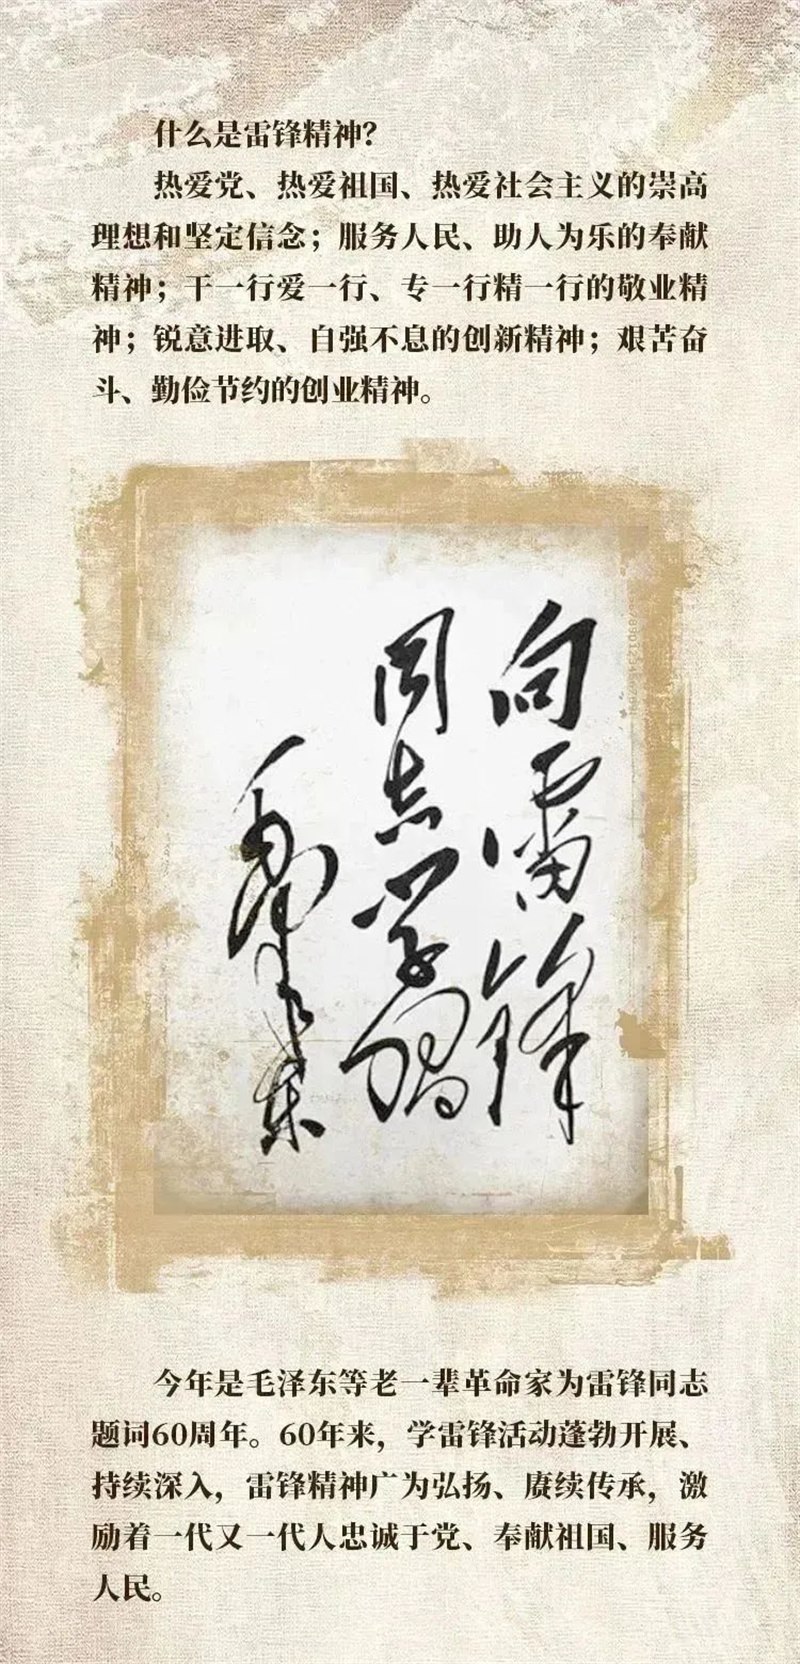 什么是雷锋精神？
热爱党、热爱祖国、热爱社会主义的崇高
理想和坚定信念；服务人民、助人为乐的奉献
精神；干一行爱一行、专一行精一行的敬业精
神；锐意进取、自强不息的创新精神；艰苦奋
斗、勤俭节约的创业精神。
向雷锋
同志学习
毛泽东
今年是毛泽东等老一辈革命家为雷锋同志
题词60周年。60年来，学雷锋活动蓬勃开展、
持续深入，雷锋精神广为弘扬、赓续传承，激
励着一代又一代人忠诚于党、奉献祖国、服务
人民。